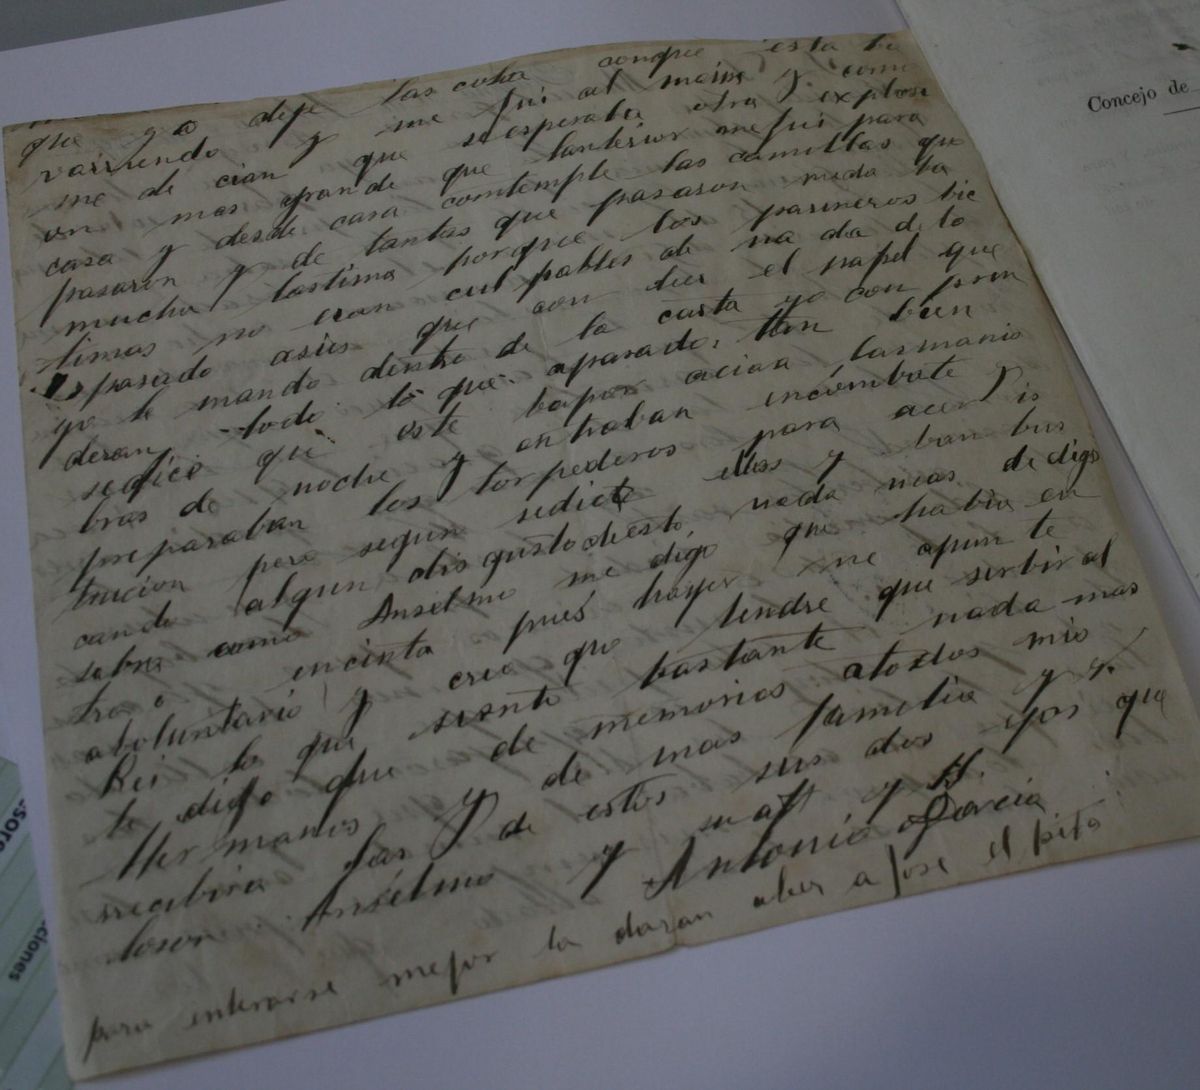 que yo deje las cosha conque esta ba
varriendo y me fui al maisa y como
me de cian que seesperaba otra explosi
on mas grande que lanterior mefui para
casa y desde casa comtemple las camillas que
pasaron y de tantas que pasaron meda ba
mucha lastima porque los parineros bic
timas no eran cul pables de na da de lo
pasado asies que con leer el papel que
yo te mando dentro de la carta yo con pren
deran todo lo que apasado. tan bien
sedice que este bapor acian las manio
bras de noche y entraban encombate y
preparaban los torpederos para acer is
trucion pero segun sedice ellos y ban bus
cando algun disgustodeesto. nada mas dedigo
sobre como Anselmo me digo que habia en
tra o encinta pues hayer me apun te
aboluntario y creo que tendre que serbir al
Rei lo que siento bastante nada mas
te digo que de memorias atodos mis
Hermanos y de mas familia y y.
recibira las y de estos sus dos yos que
loson Anselmo y
Antonio Garcia
para enterarse mejor la daran aber a Jose el pito
Concejo de
ciones